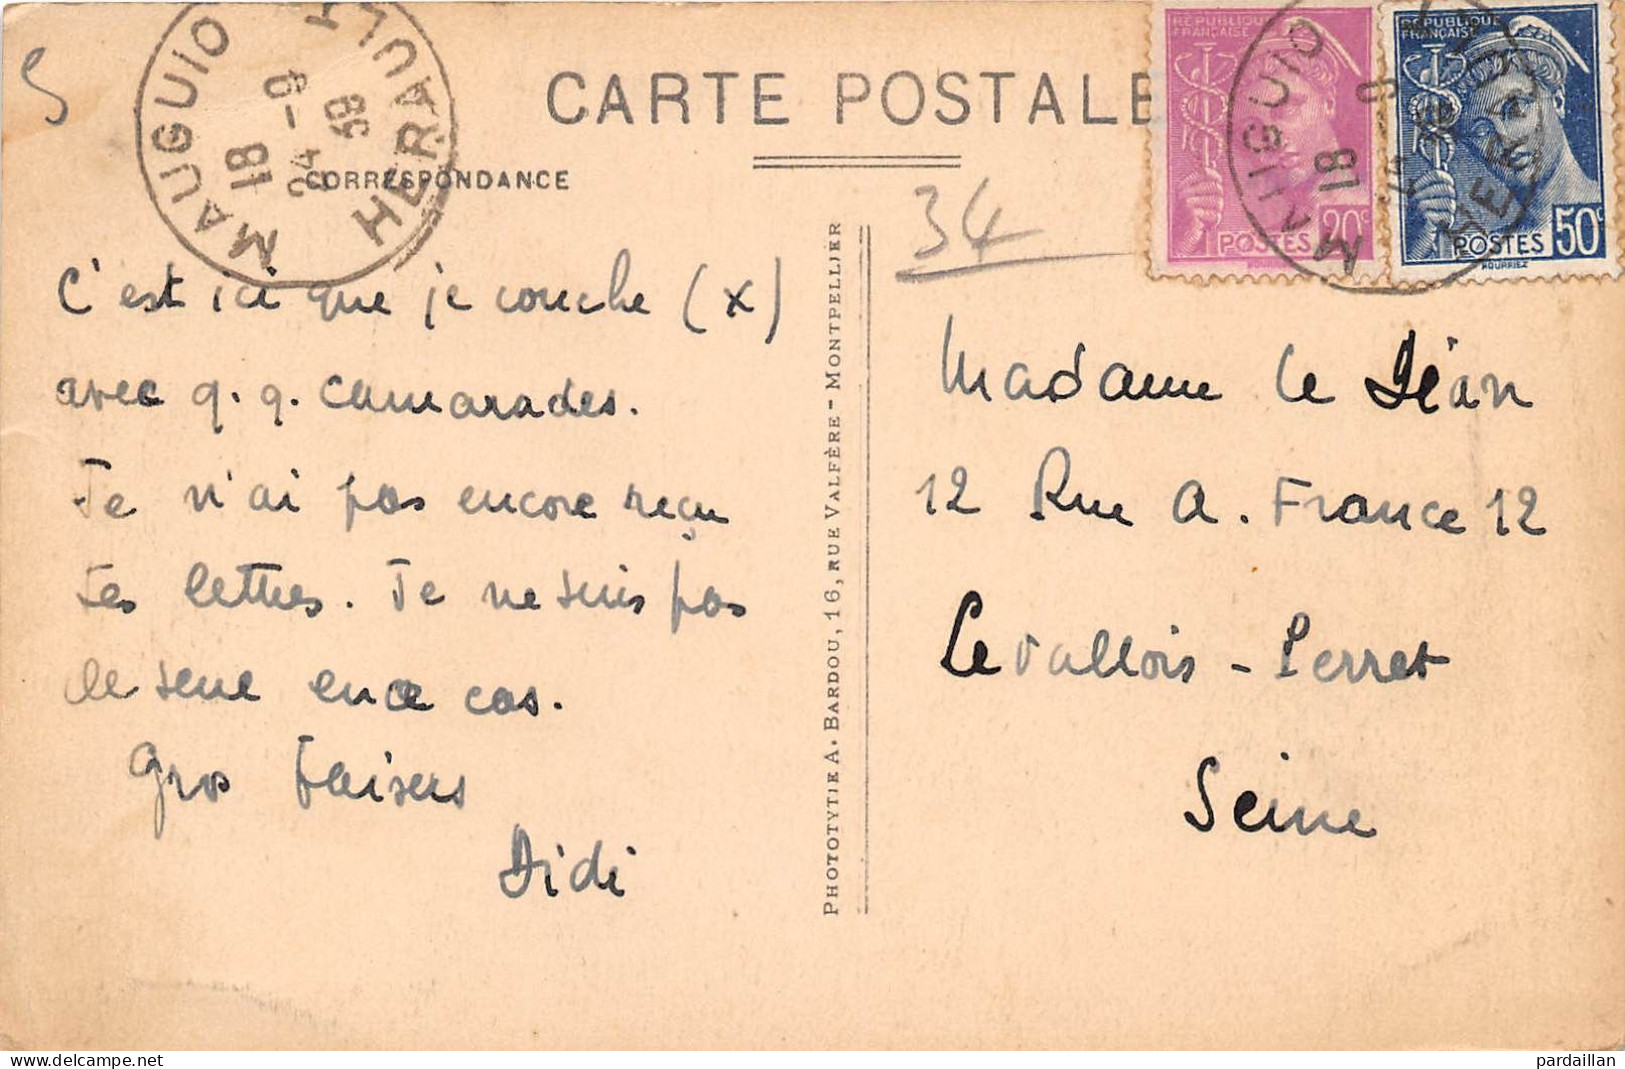 CARTE POSTALE
CORRESPONDANCE
MAUGUIO
18
24-9
39
HERAULT
RÉPUBLIQUE
FRANÇAISE
20c
POSTES
RÉPUBLIQUE
FRANÇAISE
POSTES
50c
HOURRIEZ
34
C'est ici que je couche (x)
avec q.q. camarades.
Je n'ai pas encore reçu
tes lettres. Je ne suis pas
le seul en ce cas.
Gros baisers
Didi
PHOTOTYTIE A. BARDOU, 16, RUE VALFÈRE - MONTPELLIER
Madame le Déan
12 Rue A. France 12
Levallois-Perret
Seine
pardaillan